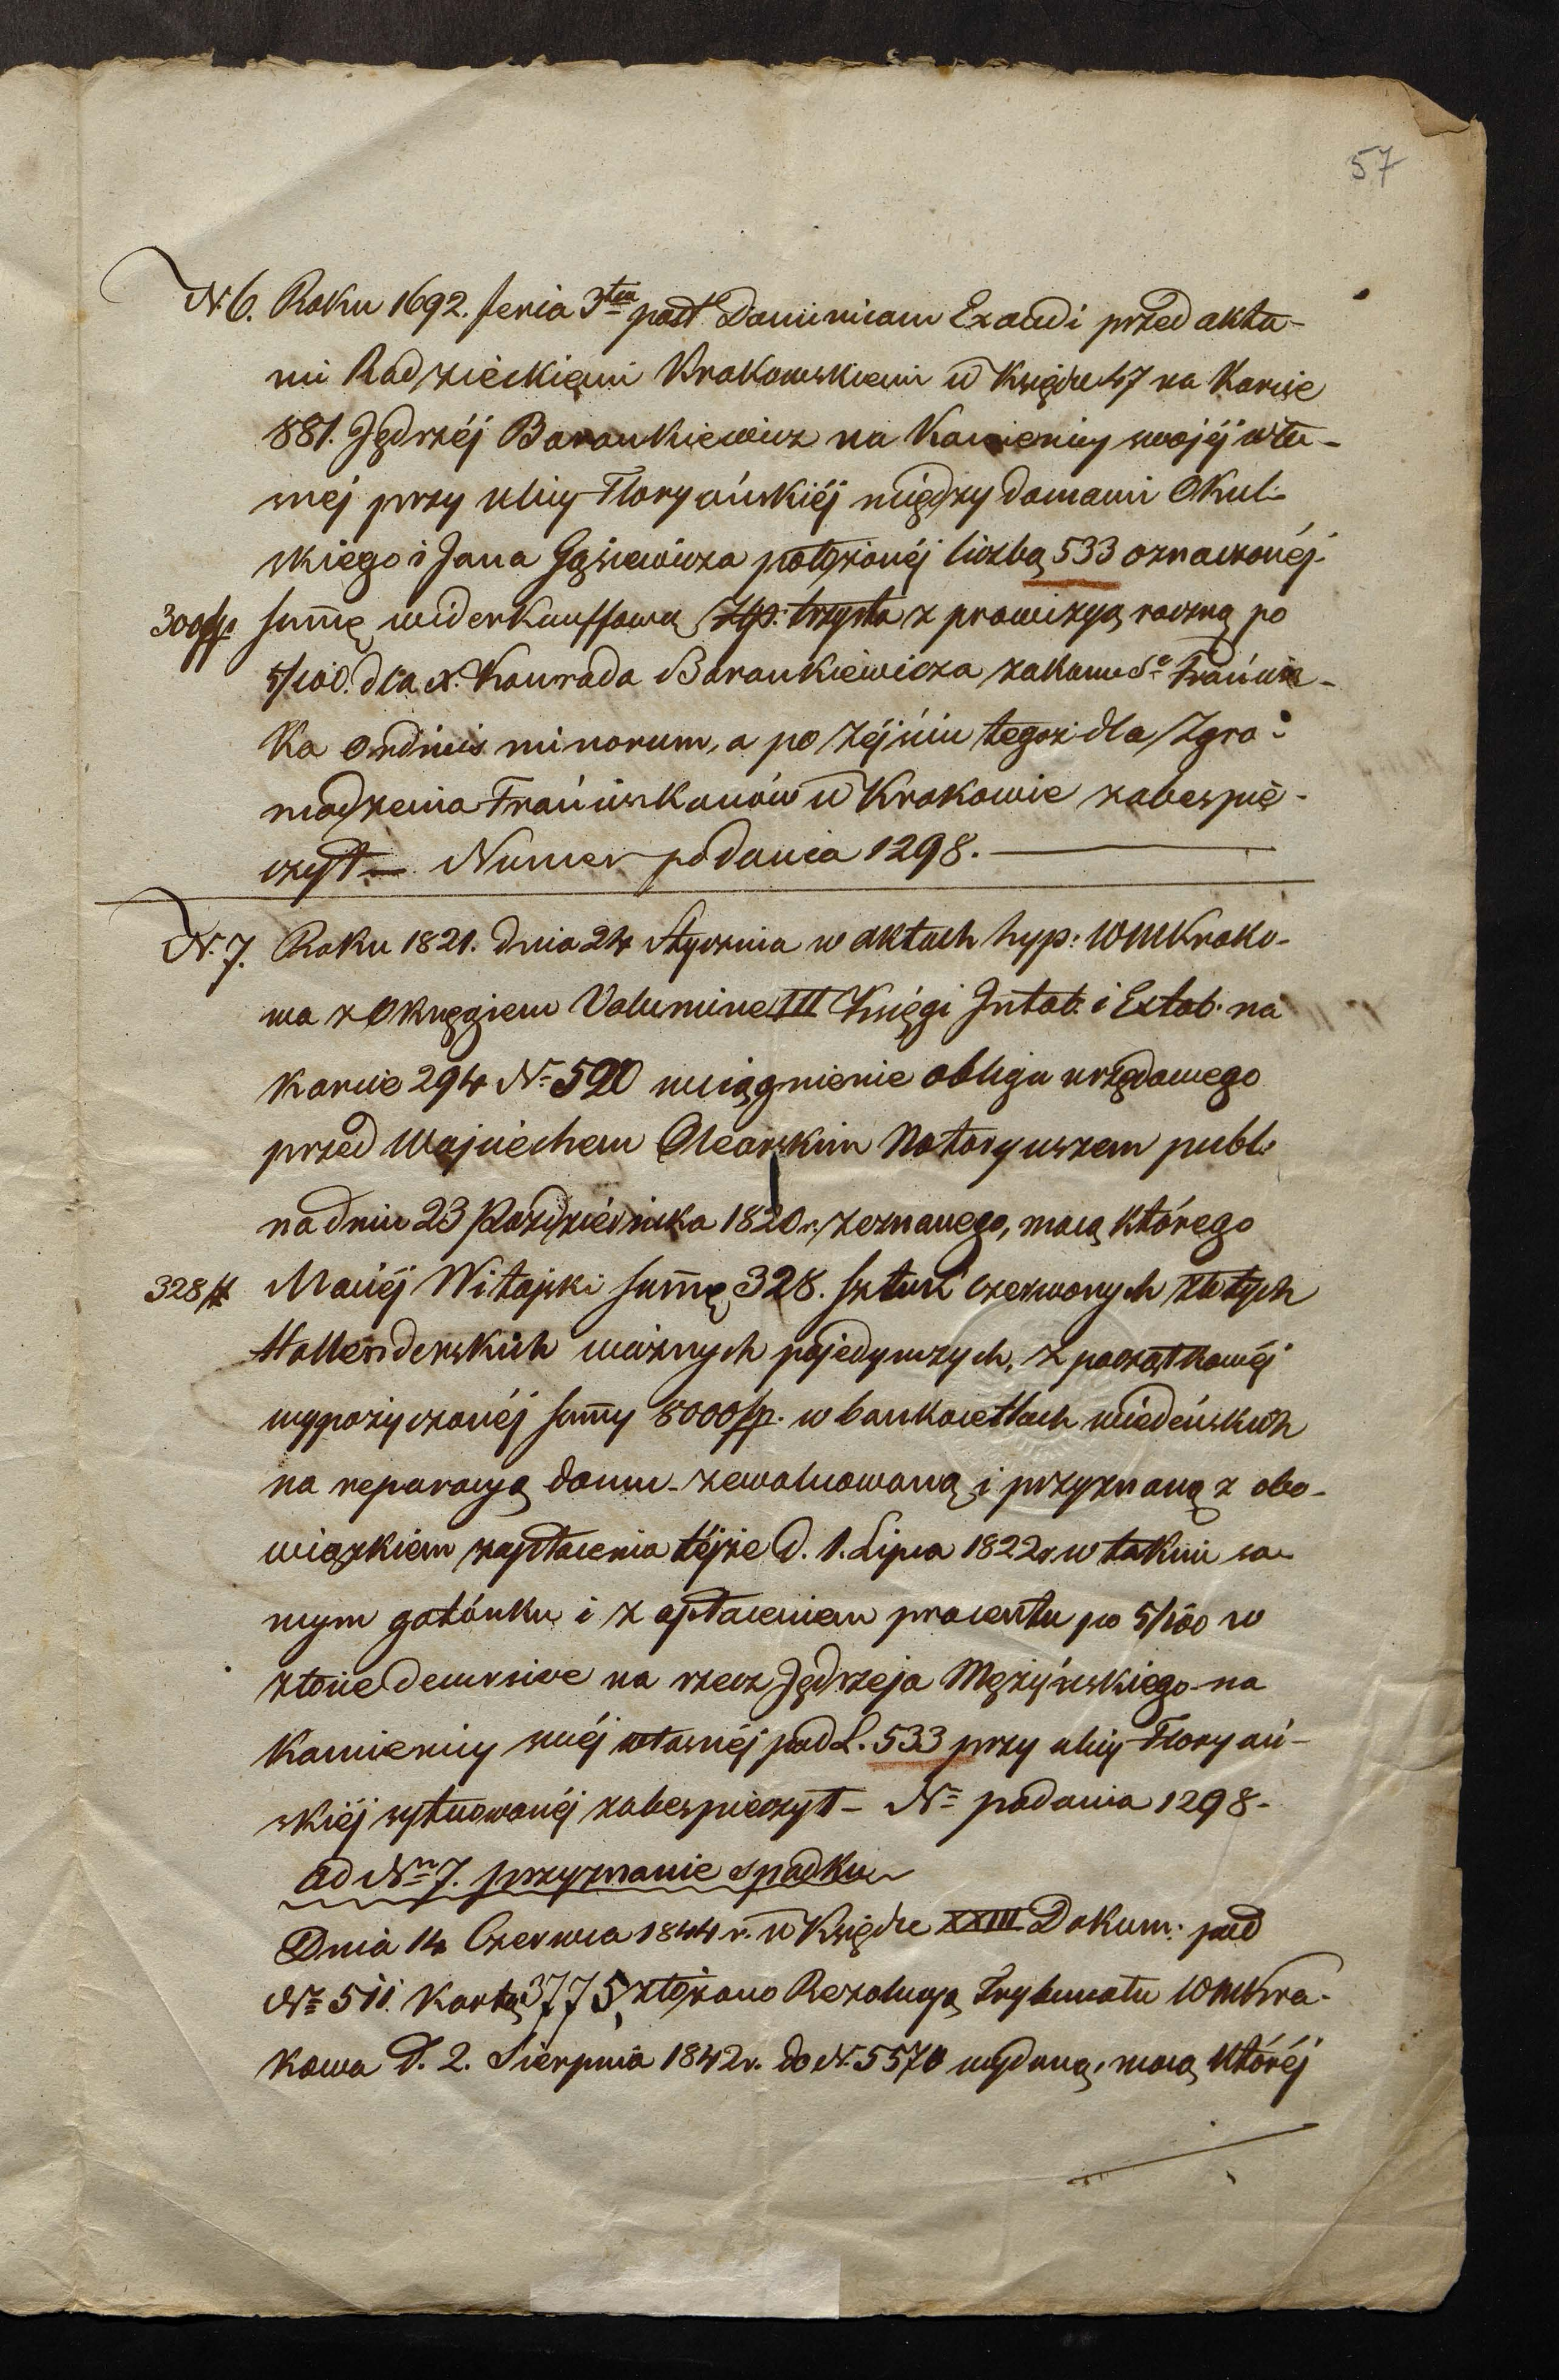 57
N. 6. Roku 1692. feria 3tia post Dominicam Exaudi przed akta-
mi Radzieckiemi Krakowskiemi w Księdze 47 na Karcie
881. Jędrzéj Barankiewicz na Kamienicy swojéj wła-
snéj przy ulicy Floryańskiéj między domami Okul-
skiego i Jana Gąsiewicza położonéj liczbą 533 oznaczonéj
300 fp. summę widerkauffową Złp: trzysta z prowizyą roczną po
5/100. dla X. Konrada Barankiewicza zakonu So Francisz-
ka Ordinis minorum, a po zéjściu tegoż dla Zgro-
madzenia Franciszkanów w Krakowie zabespie-
czył — Numer podania 1298.
N. 7. Roku 1821. dnia 24 Stycznia w aktach hyp: WMKrako-
wa z Okręgiem Volumine III Księgi Intab. i Extab. na
karcie 294 No 520 wciągnienie obligu urzędowego
przed Wojciechem Olearskim Notaryuszem publ:
na dniu 23 Października 1820 r. zeznanego, mocą którego
328 # Maciéj Witajski summę 328. sztuk czerwonych złotych
Hollenderskich ważnych pojedynczych, z początkowéj
wypożyczonéj summy 8000 fp. w bankocetlach wiedeńskich
na reparacyą domu zewaluowaną i przyznaną z obo-
wiązkiem zapłacenia téjże d. 1. Lipca 1822 r. w takim sa-
mym gatónku i z opłaceniem procentu po 5/100 w
złocie decursive na rzecz Jędrzeja Mężyńskiego na
Kamienicy swéj własnéj pod L. 533 przy ulicy Floryań-
skiéj sytuowanéj zabespieczył — No podania 1298.
ad Nrm 7. przyznanie spadku
Dnia 14 Czerwca 1844 r. w Księdze XXIII Dokum: pod
No 511. Kartą 3775, złożono Rezolucyą Trybunału WMKra-
kowa d. 2. Sierpnia 1842 r. do N. 5570 wydaną, mocą któréj